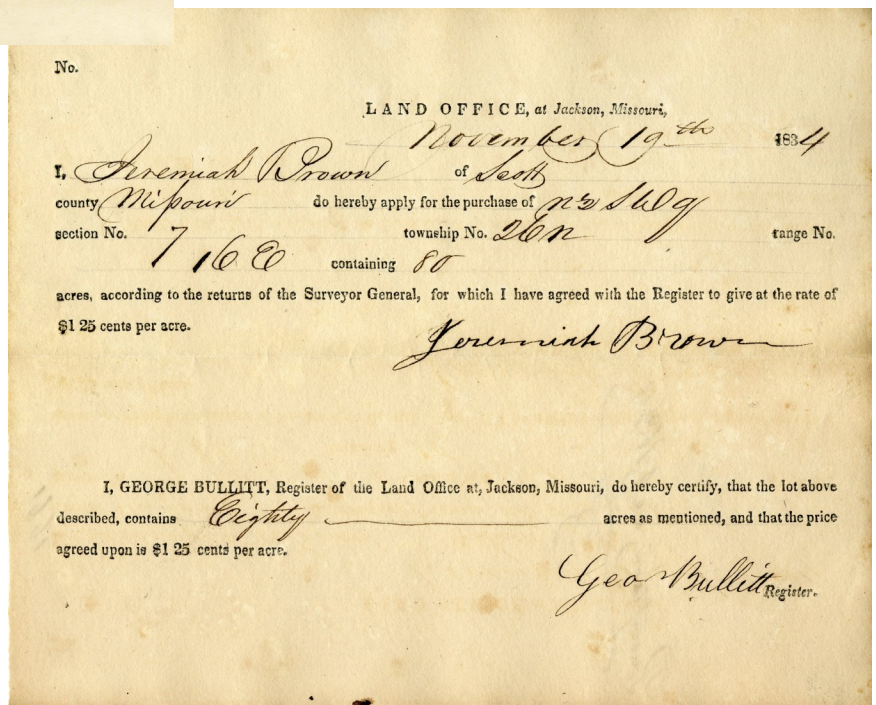 No.
LAND OFFICE, at Jackson, Missouri,
November 19th 1834
I, Jeremiah Brown of Scott
county Missouri do hereby apply for the purchase of n½ SW q
section No. 7 township No. 26 n range No.
16 E containing 80
acres, according to the returns of the Surveyor General, for which I have agreed with the Register to give at the rate of
$1 25 cents per acre.
Jeremiah Brown
I, GEORGE BULLITT, Register of the Land Office at, Jackson, Missouri, do hereby certify, that the lot above
described, contains Eighty acres as mentioned, and that the price
agreed upon is $1 25 cents per acre.
Geo Bullitt Register.